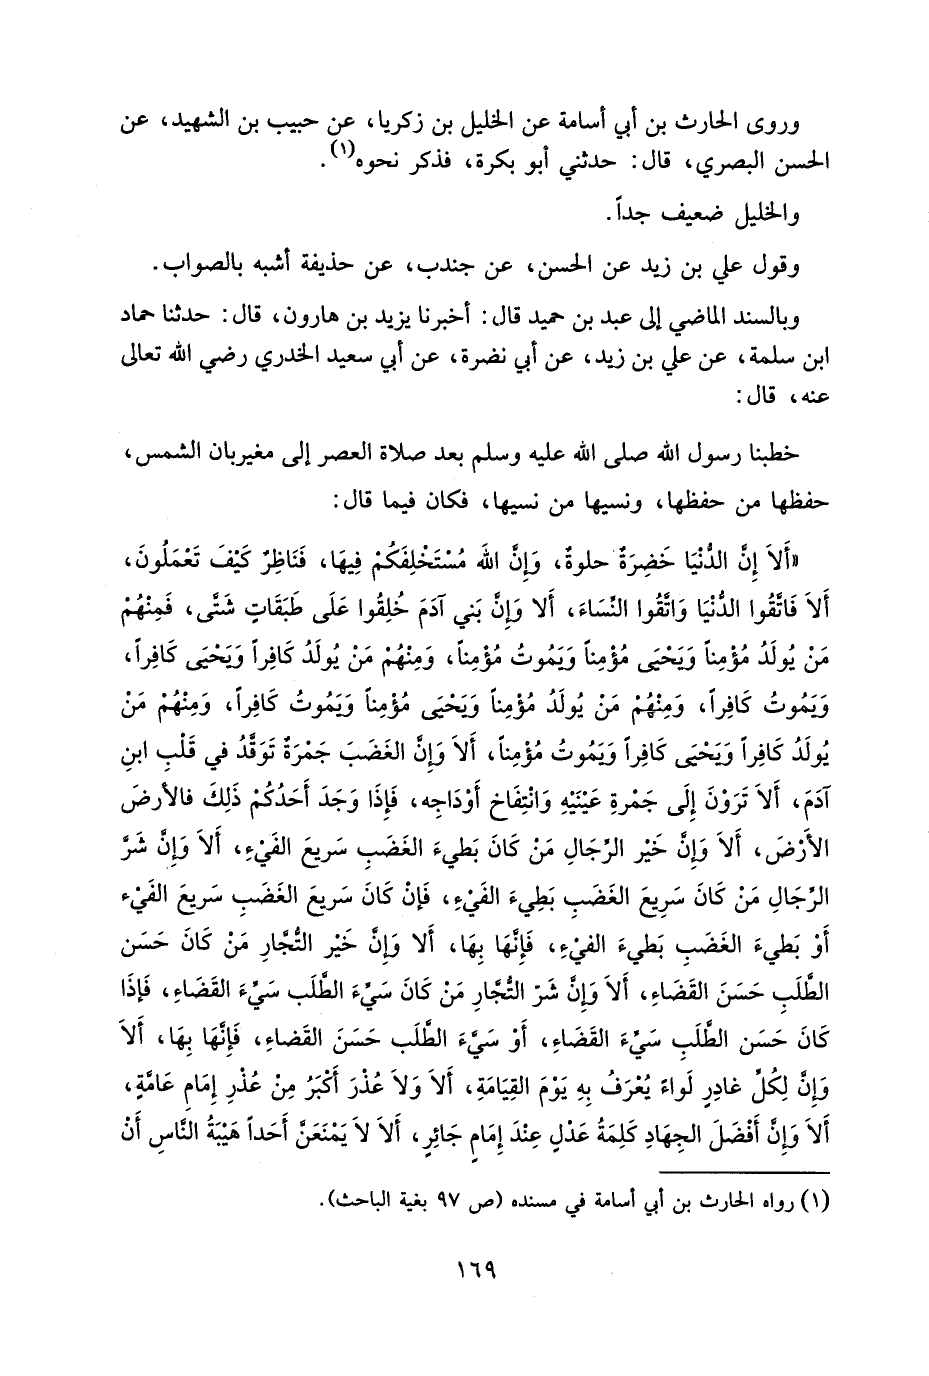 وروى الحارث بن أبي أسامة عن الخليل بن زكريا، عن حبيب بن الشهيد، عن
الحسن البصري، قال: حدثني أبو بكرة، فذكر نحوه(١).
والخليل ضعيف جداً.
وقول علي بن زيد عن الحسن، عن جندب، عن حذيفة أشبه بالصواب.
وبالسند الماضي إلى عبد بن حميد قال: أخبرنا يزيد بن هارون، قال: حدثنا حماد
ابن سلمة، عن علي بن زيد، عن أبي نضرة، عن أبي سعيد الخدري رضي الله تعالى
عنه، قال:
خطبنا رسول الله صلى الله عليه وسلم بعد صلاة العصر إلى مغيربان الشمس،
حفظها من حفظها، ونسيها من نسيها، فكان فيما قال:
«أَلاَ إِنَّ الدُّنْيَا خَضِرَةٌ حلوةٌ، وَإِنَّ اللهَ مُسْتَخْلِفَكُمْ فِيهَا، فَنَاظِرٌ كَيْفَ تَعْمَلُونَ،
أَلاَ فَاتَّقُوا الدُّنْيَا وَاتَّقُوا النِّسَاءَ، أَلا وَإِنَّ بَني آدَمَ خُلِقُوا عَلَى طَبَقَاتٍ شَتَّى، فَمِنْهُمْ
مَنْ يُولَدُ مُؤْمِناً وَيَحْيَى مُؤْمِناً وَيَمُوتُ مُؤْمِناً، وَمِنْهُمْ مَنْ يُولَدُ كَافِراً وَيَحْيَى كَافِراً،
وَيَمُوتُ كَافِراً، وَمِنْهُمْ مَنْ يُولَدُ مُؤْمِناً وَيَحْيَى مُؤْمِناً وَيَمُوتُ كَافِراً، وَمِنْهُمْ مَنْ
يُولَدُ كَافِراً وَيَحْيَى كَافِراً وَيَمُوتُ مُؤْمِناً، أَلاَ وَإِنَّ الغَضَبَ جَمْرَةٌ تَوَقَّدُ في قَلْبِ ابنِ
آدَمَ، أَلاَ تَرَوْنَ إِلَى جَمْرةِ عَيْنَيْهِ وَانْتِفَاخِ أَوْدَاجِه، فَإِذَا وَجَدَ أَحَدُكُمْ ذَلِكَ فالأرضَ
الأَرْضَ، أَلاَ وَإِنَّ خَيْر الرِّجَالِ مَنْ كَانَ بَطيءَ الغَضَبِ سَريعَ الفَيْءِ، أَلاَ وَإِنَّ شَرَّ
الرِّجَالِ مَنْ كَانَ سَرِيعَ الغَضَبِ بَطِيءَ الفَيْءِ، فَإِنْ كَانَ سَريعَ الغَضَبِ سَريعَ الفَيْء
أَوْ بَطيءَ الغَضَبِ بَطيءَ الفيْءِ، فَإِنَّهَا بِهَا، أَلا وَإِنَّ خَيْر التُّجَّارِ مَنْ كَانَ حَسَن
الطَّلَبِ حَسَنَ القَضَاءِ، أَلاَ وَإِنَّ شَرّ التُّجَّارِ مَنْ كَانَ سَيِّءَ الطَّلَب سَيِّءَ القَضَاءِ، فَإِذَا
كَانَ حَسَن الطَّلَبِ سَيِّءَ القَضَاءِ، أَوْ سَيَّءَ الطَّلَب حَسَنَ القَضاءِ، فَإِنَّهَا بِهَا، أَلاَ
وَإِنَّ لِكُلِّ غادِرٍ لواءً يُعْرَفُ بِهِ يَوْمَ القِيَامَةِ، أَلاَ وَلاَ غَدْرَ أَكْبَرُ مِنْ غَدْرِ إِمَامِ عَامَّةٍ،
أَلاَ وَإِنَّ أَفْضَلَ الجِهَادِ كَلِمَةُ عَدْلٍ عِنْدَ إِمَامٍ جَائِرٍ، أَلاَ لاَ يَمْنَعَنَّ أَحَداً هَيْبَةُ النَّاسِ أَنْ
(١) رواه الحارث بن أبي أسامة في مسنده (ص ٩٧ بغية الباحث).
١٦٩